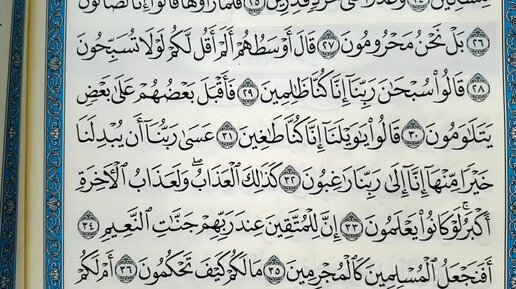 مسكين ٢٤ وغدوا على حرد قدرين ٢٥ فلما رأوها قالوا إنا لضالون
٢٦ بل نحن محرومون ٢٧ قال أوسطهم ألم أقل لكم لولا تسبحون
٢٨ قالوا سبحن ربنا إنا كنا ظلمين ٢٩ فأقبل بعضهم على بعض
يتلومون ٣٠ قالوا يويلنا إنا كنا طغين ٣١ عسى ربنا أن يبدلنا
خيرا منها إنا إلى ربنا رغبون ٣٢ كذلك العذاب ولعذاب الأخرة
أكبر لو كانوا يعلمون ٣٣ إن للمتقين عند ربهم جنت النعيم ٣٤
أفنجعل المسلمين كالمجرمين ٣٥ ما لكم كيف تحكمون ٣٦ أم لكم